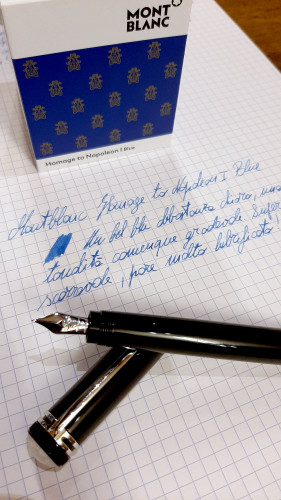 MONT
BLANC
Homage to Napoleon I Blue
Montblanc Homage to Napoleon I Blue
Un bel blu abbastanza chiaro, una
tondità comunque gradevole. Super
scorrevole, pare molto lubrificato,